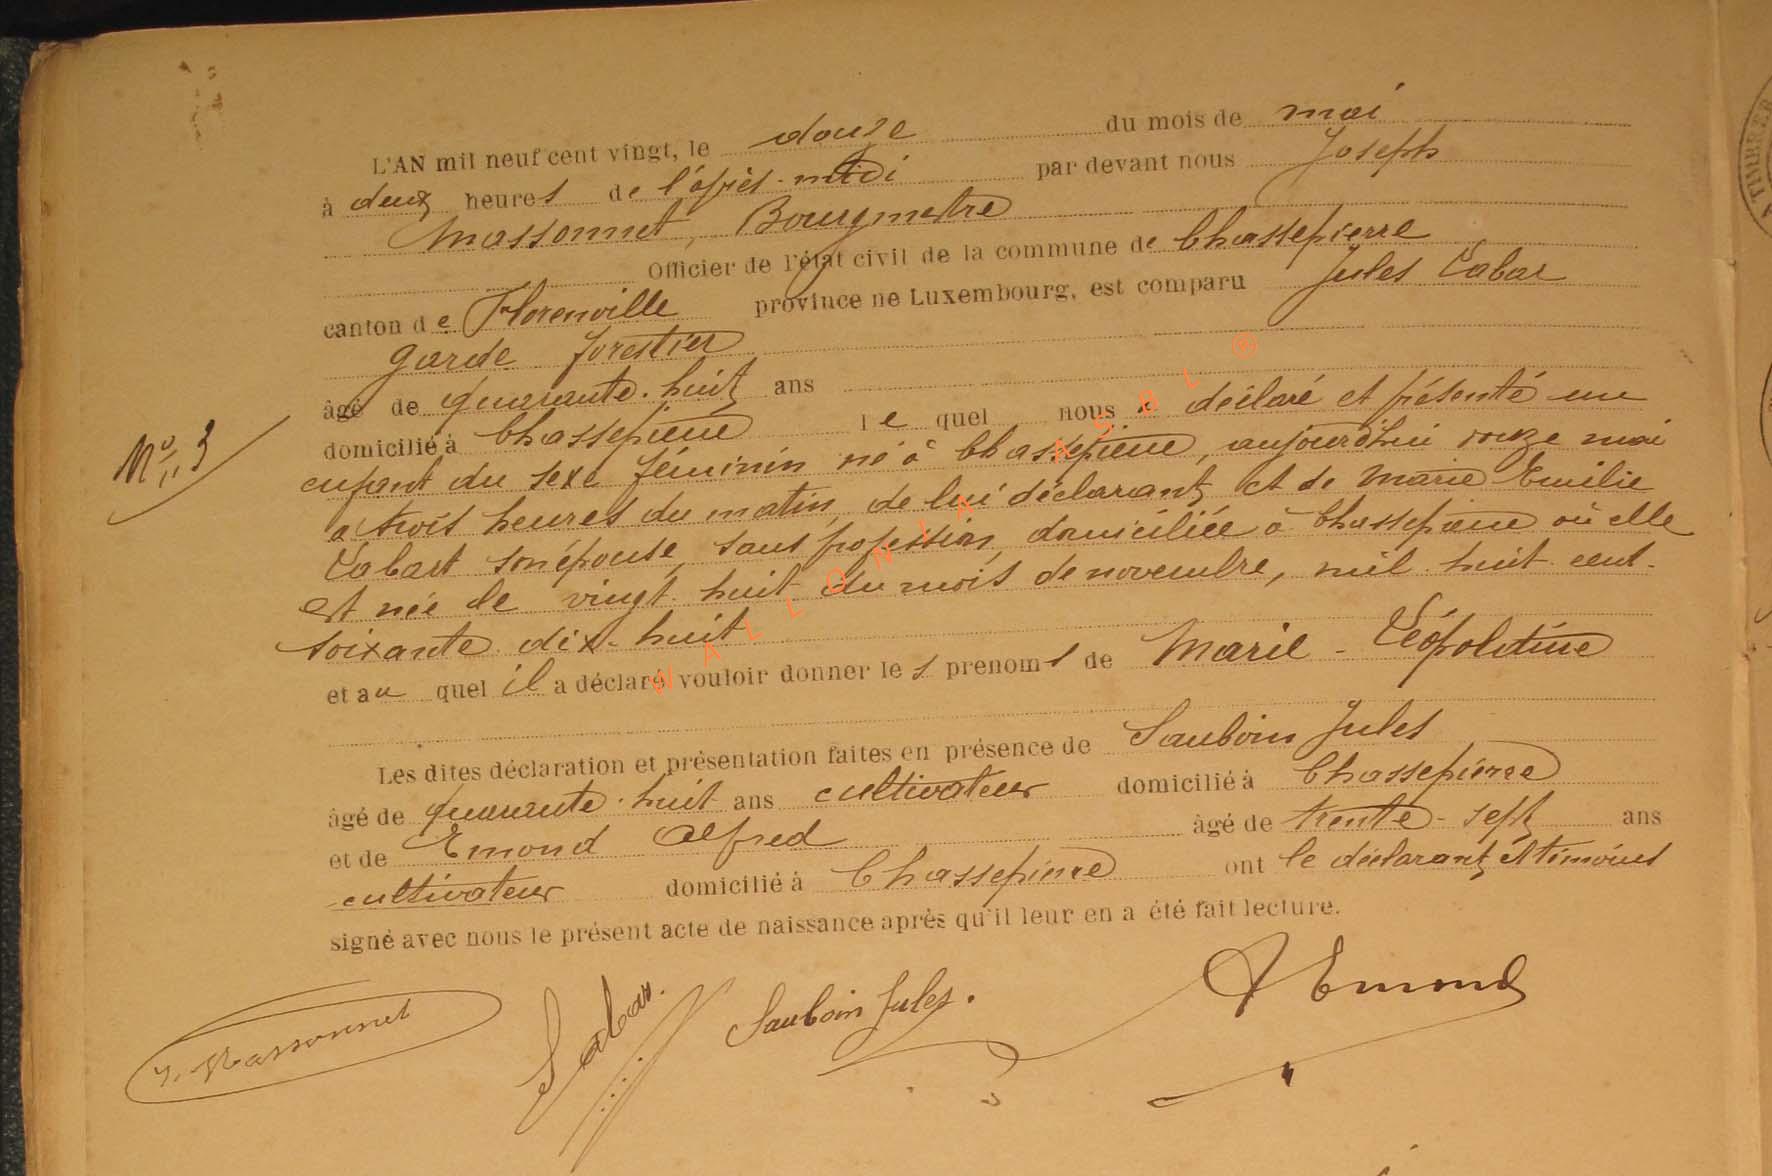 L'AN mil neuf cent vingt, le douze du mois de mai
à deux heures de l'après-midi par devant nous Joseph
Massonnet, Bourgmestre
Officier de l'état civil de la commune de Chassepierre
canton de Florenville province de Luxembourg, est comparu Jules
garde forestier
âgé de quarante-huit ans
domicilié à Chassepierre lequel nous a déclaré et présenté un
N° 3
enfant du sexe féminin né à Chassepierre, aujourd'hui douze mai
a trois heures du matin, de lui déclarant et de Marie Emilie
son épouse, sans profession, domiciliée à Chassepierre où elle
est née le vingt-huit du mois de novembre, mil huit cent-
soixante dix-huit
et au quel il a déclaré vouloir donner les prenoms de Marie-Léopoldine
Les dites déclaration et présentation faites en présence de Sauboin Jules
âgé de quarante-huit ans cultivateur domicilié à Chassepierre
et de Emond Alfred âgé de trente-sept ans
cultivateur domicilié à Chassepierre ont le déclarant et témoins
signé avec nous le présent acte de naissance après qu'il leur en a été fait lecture.
J. Massonnet
Sauboin Jules.
A Emond
WALLONIA ASBL ®
TIMBRE